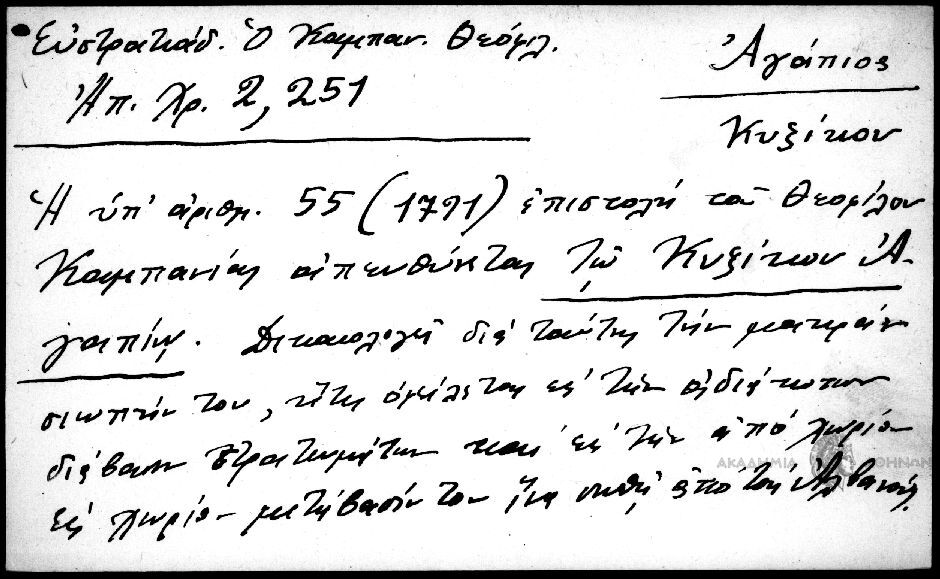 Εὐστρατιάδ. Ὁ Καμπαν. Θεόφιλ.
Ἠπ. Χρ. 2, 251
Ἀγάπιος
Κυζίκου
Ἡ ὑπ' ἀριθμ. 55 (1791) ἐπιστολή τοῦ Θεοφίλου
Καμπανίας ἀπευθύνεται τῷ Κυζίκου Ἀ-
γαπίῳ. Δικαιολογεῖ διά ταύτης τήν μακράν
σιωπήν του, ἥτις ὀφείλεται εἰς τήν ἀδιάκοπον
διάβασιν στρατευμάτων καί εἰς τήν ἀπό χωρίον
εἰς χωρίον μετάβασίν του ἵνα σωθῇ ἀπό τούς Ἀλβανούς.
ΑΚΑΔΗΜΙΑ ΑΘΗΝΩΝ